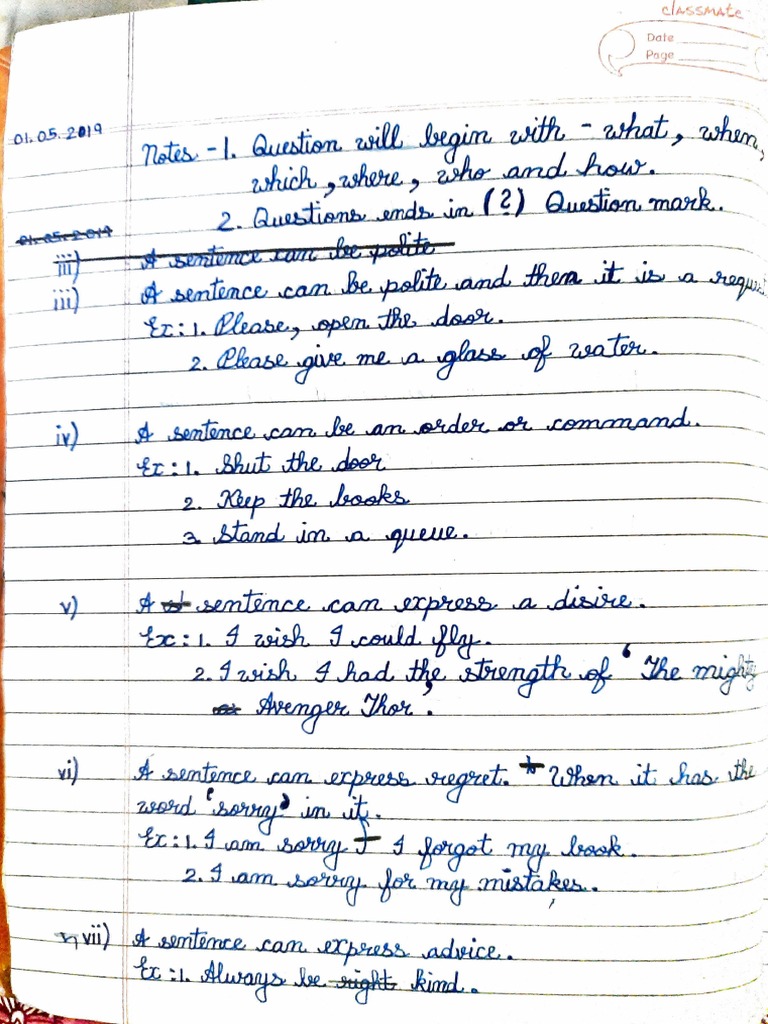 classmate
Date
Page
01.05.2019
Notes - 1. Question will begin with - what, when,
which, where, who and how.
2. Questions ends in (?) Question mark.
01.05.2019
iii) A sentence can be polite
iii) A sentence can be polite and then it is a
Ex: 1. Please, open the door.
2. Please give me a glass of water.
iv) A sentence can be an order or command.
Ex: 1. Shut the door
2. Keep the books
3. Stand in a queue.
v) A sentence can express a disire.
Ex: 1. I wish I could fly.
2. I wish I had the strength of ‘The mighty
Avenger Thor’.
vi) A sentence can express regret. When it has the
word ‘sorry’ in it.
Ex: 1. I am sorry I I forgot my book.
2. I am sorry for my mistakes.
vii) A sentence can express advice.
Ex: 1. Always be right kind.